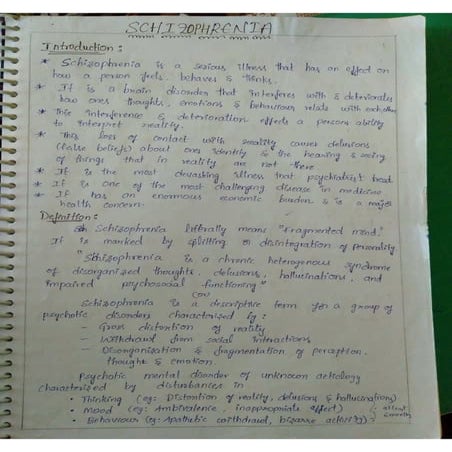 SCHIZOPHRENIA
Introduction :
* Schizophrenia is a serious illness that has an effect on
how a person feels, behaves & thinks.
* It is a brain disorder that interferes with & deteriorates
how ones thoughts, emotions & behaviours relate with each other
* This interference & deterioration effects a persons ability
to interpret reality.
* This loss of contact with reality causes delusions
(false beliefs) about ones identity & the hearing & seeing
of things that in reality are not there
* It is the most devasting illness that psychiatrist treat
* It is one of the most challenging disease in medicine
* It has an enormous economic burden & is a major
health concern.
Definition :
Schizophrenia literally means "Fragmented mind".
It is marked by splitting or disintegration of personality.
"Schizophrenia is a chronic heterogenous syndrome
of disorganised thoughts, delusions, hallucinations, and
impaired psychosocial functioning"
(or)
Schizophrenia is a descriptive term for a group of
psychotic disorders characterised by :
- Gross distortion of reality
- Withdrawl from social intractions
- Disorganisation & fragmentation of perception,
thought & emotion.
Psychotic mental disorder of unknown aetiology
characterised by disturbances in
• Thinking (eg: Distortion of reality, delusions & hallucinations)
• Mood (eg: Ambivalence, inappropriate effect)
• Behaviour (eg: Apathetic withdrawl, bizarre activity)